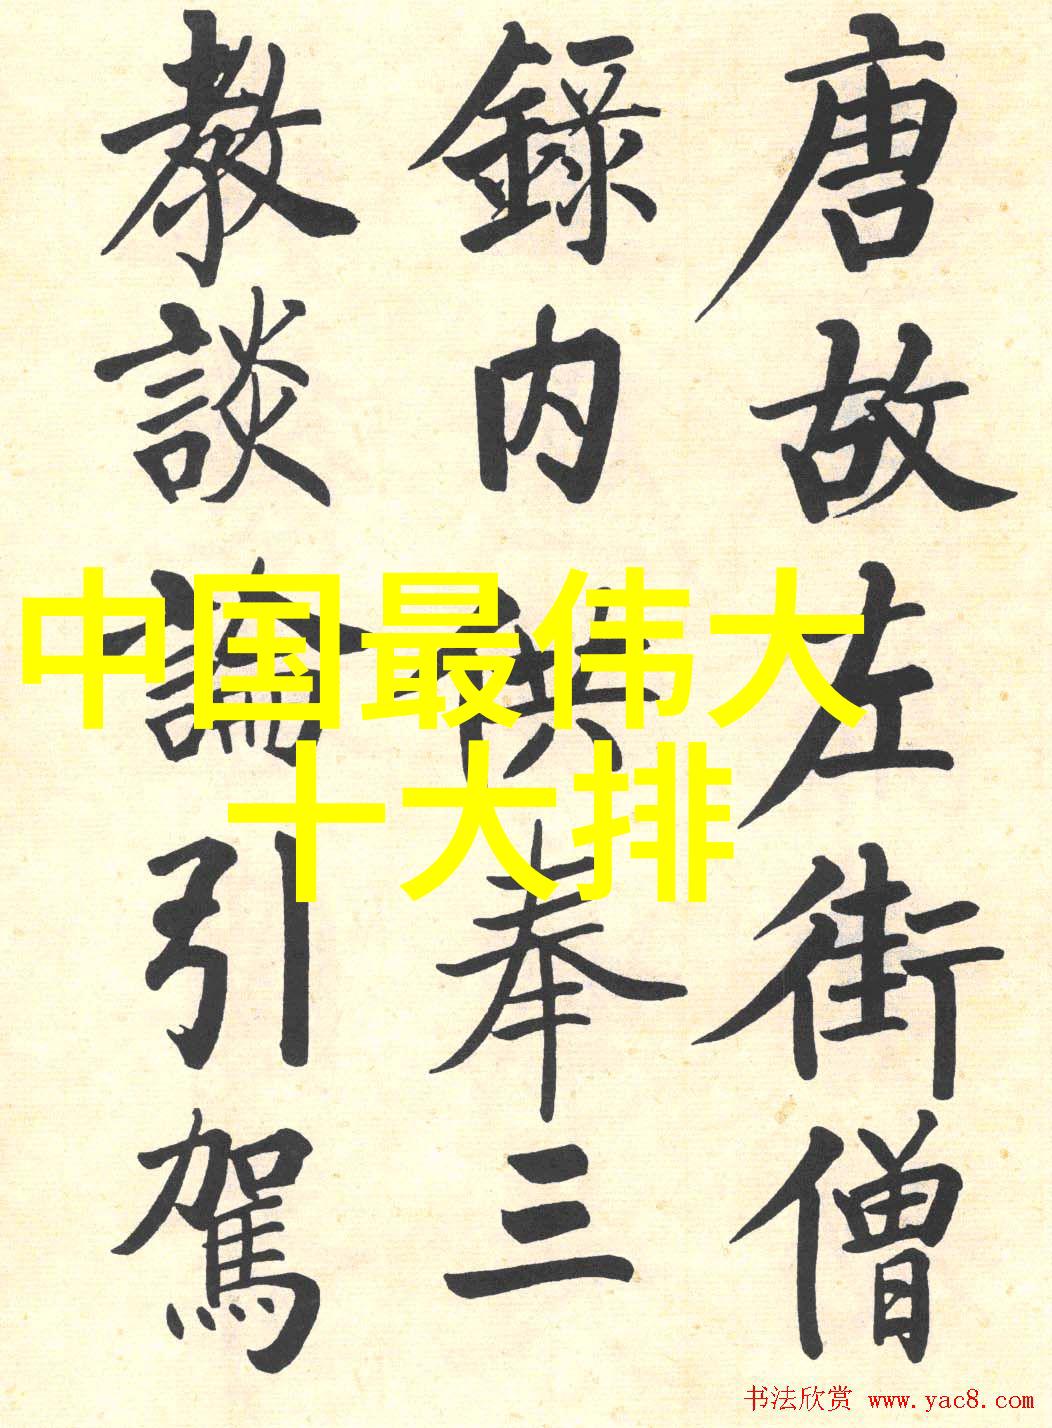 唐故左街僧
錄内供奉三
教談論引駕
中国最伟大
十大排
书法欣赏 www.yac8.com